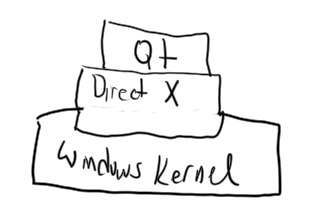 Qt
Direct X
Windows Kernel